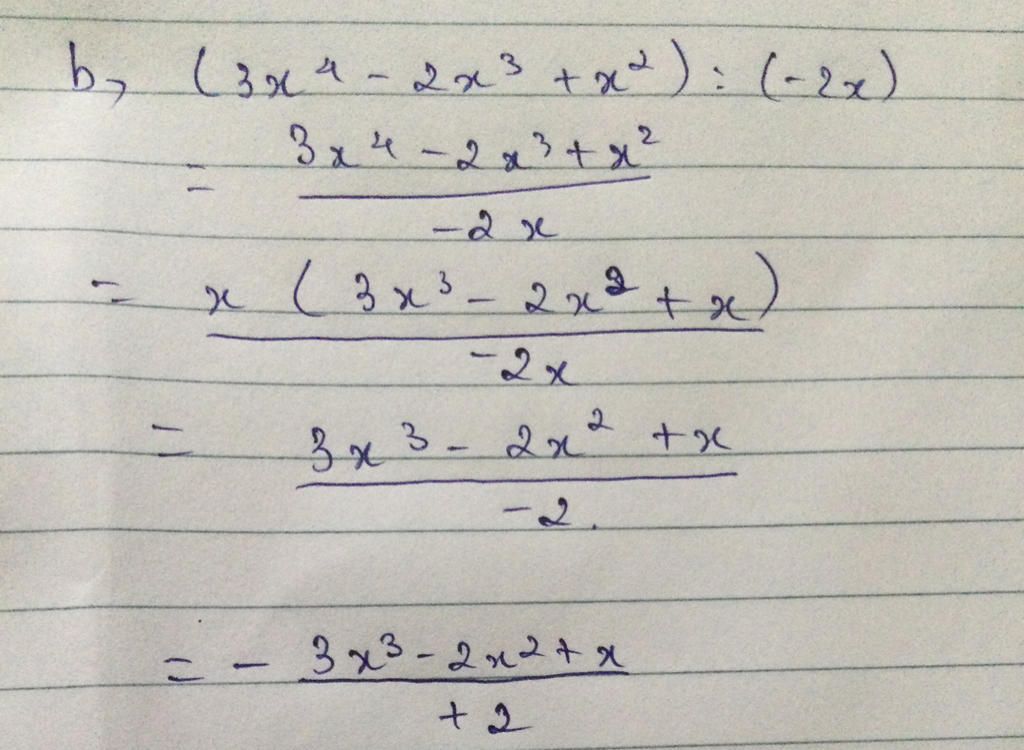 b, (3x⁴ - 2x³ + x²) : (-2x)
= 3x⁴ - 2x³ + x²
-2x
= x (3x³ - 2x² + x)
-2x
= 3x³ - 2x² + x
-2.
= - 3x³ - 2x² + x
+2